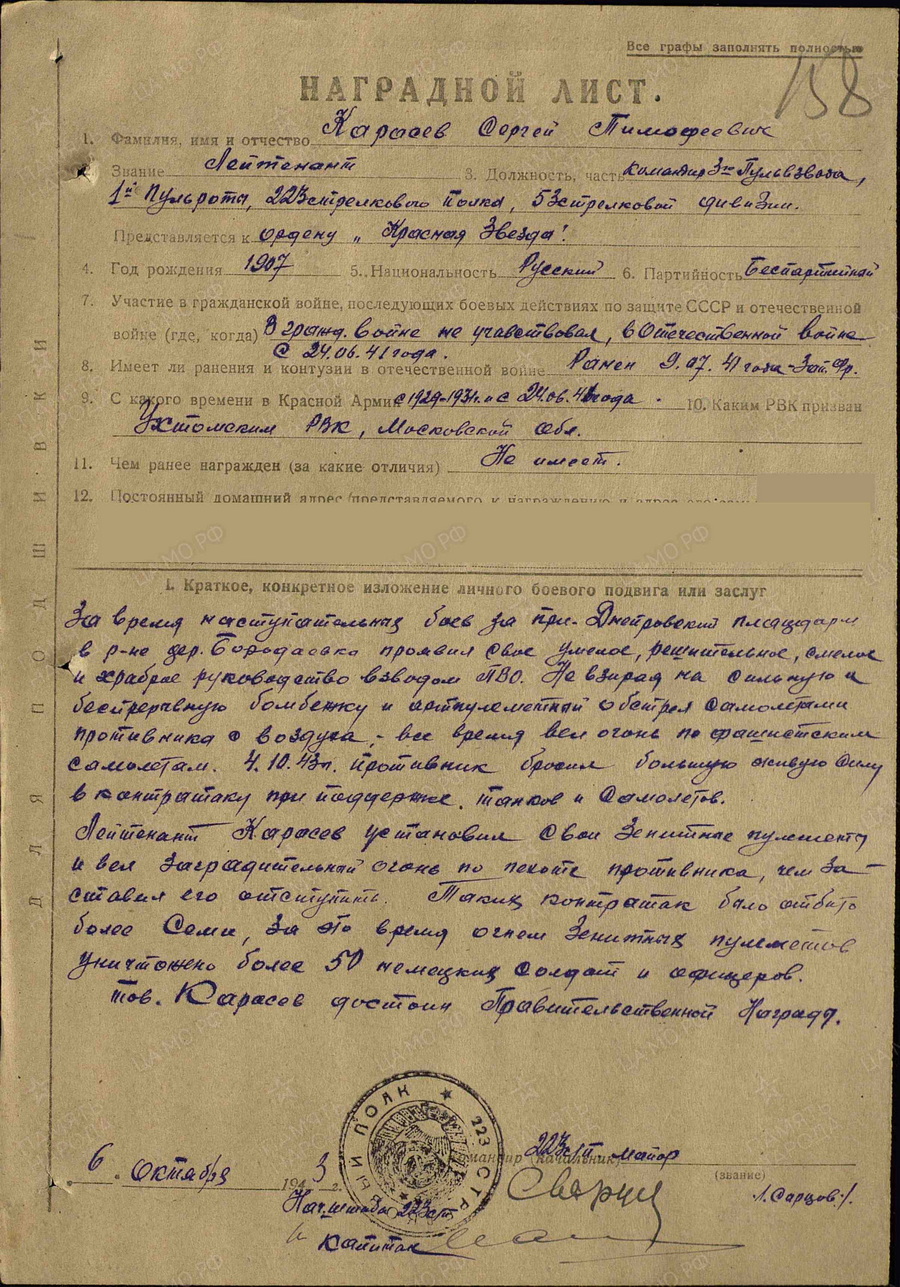 Все графы заполнять полностью
158
НАГРАДНОЙ ЛИСТ.
1. Фамилия, имя и отчество Карасев Сергей Тимофеевич
2. Звание Лейтенант 3. Должность, часть командир 3го Пульвзвода,
1й Пульрота, 223 стрелкового Полка, 53 стрелковой дивизии.
Представляется к ордену „Красная Звезда".
4. Год рождения 1907 5. Национальность Русский 6. Партийность Беспартийный
7. Участие в гражданской войне, последующих боевых действиях по защите СССР и отечественной
войне (где, когда) В гражд. войне не участвовал, в Отечественной войне
с 24.06.41 года.
8. Имеет ли ранения и контузии в отечественной войне Ранен 9.07.41 года - Зап. Фр.
9. С какого времени в Красной Армии с 1929-1931г. и с 24.06.41 года. 10. Каким РВК призван
Ухтомским РВК, Московской обл.
11. Чем ранее награжден (за какие отличия) Не имеет.
12. Постоянный домашний адрес (представляемого к награждению и адрес его
I. Краткое, конкретное изложение личного боевого подвига или заслуг
За время наступательных боев за при-Днепровский плацдарм
в р-не дер. Бородаевка проявил свое умелое, решительное, смелое
и храброе руководство взводом ПВО. Не взирая на сильную и
беспрерывную бомбежку и обстрел самолетами
противника с воздуха, - все время вел огонь по фашистским
самолетам. 4.10.43г. противник бросил большую живую силу
в контратаку при поддержке танков и самолетов.
Лейтенант Карасев установил свои зенитные пулеметы
и вел заградительный огонь по пехоте противника, чем за-
ставил его отступить. Таких контратак было отбито
более семи, за это время огнем зенитных пулеметов
уничтожено более 50 немецких солдат и офицеров.
тов. Карасев достоин Правительственной Награды.
223 СТРЕЛКОВЫЙ ПОЛК
6 октября 1943 г.
Командир (начальник) 223 сп майор
(звание)
/.Сарцов./.
Нач. штаба 223 сп
капитан
ДЛЯ ПОДШИВКИ
ЦАМО.РФ